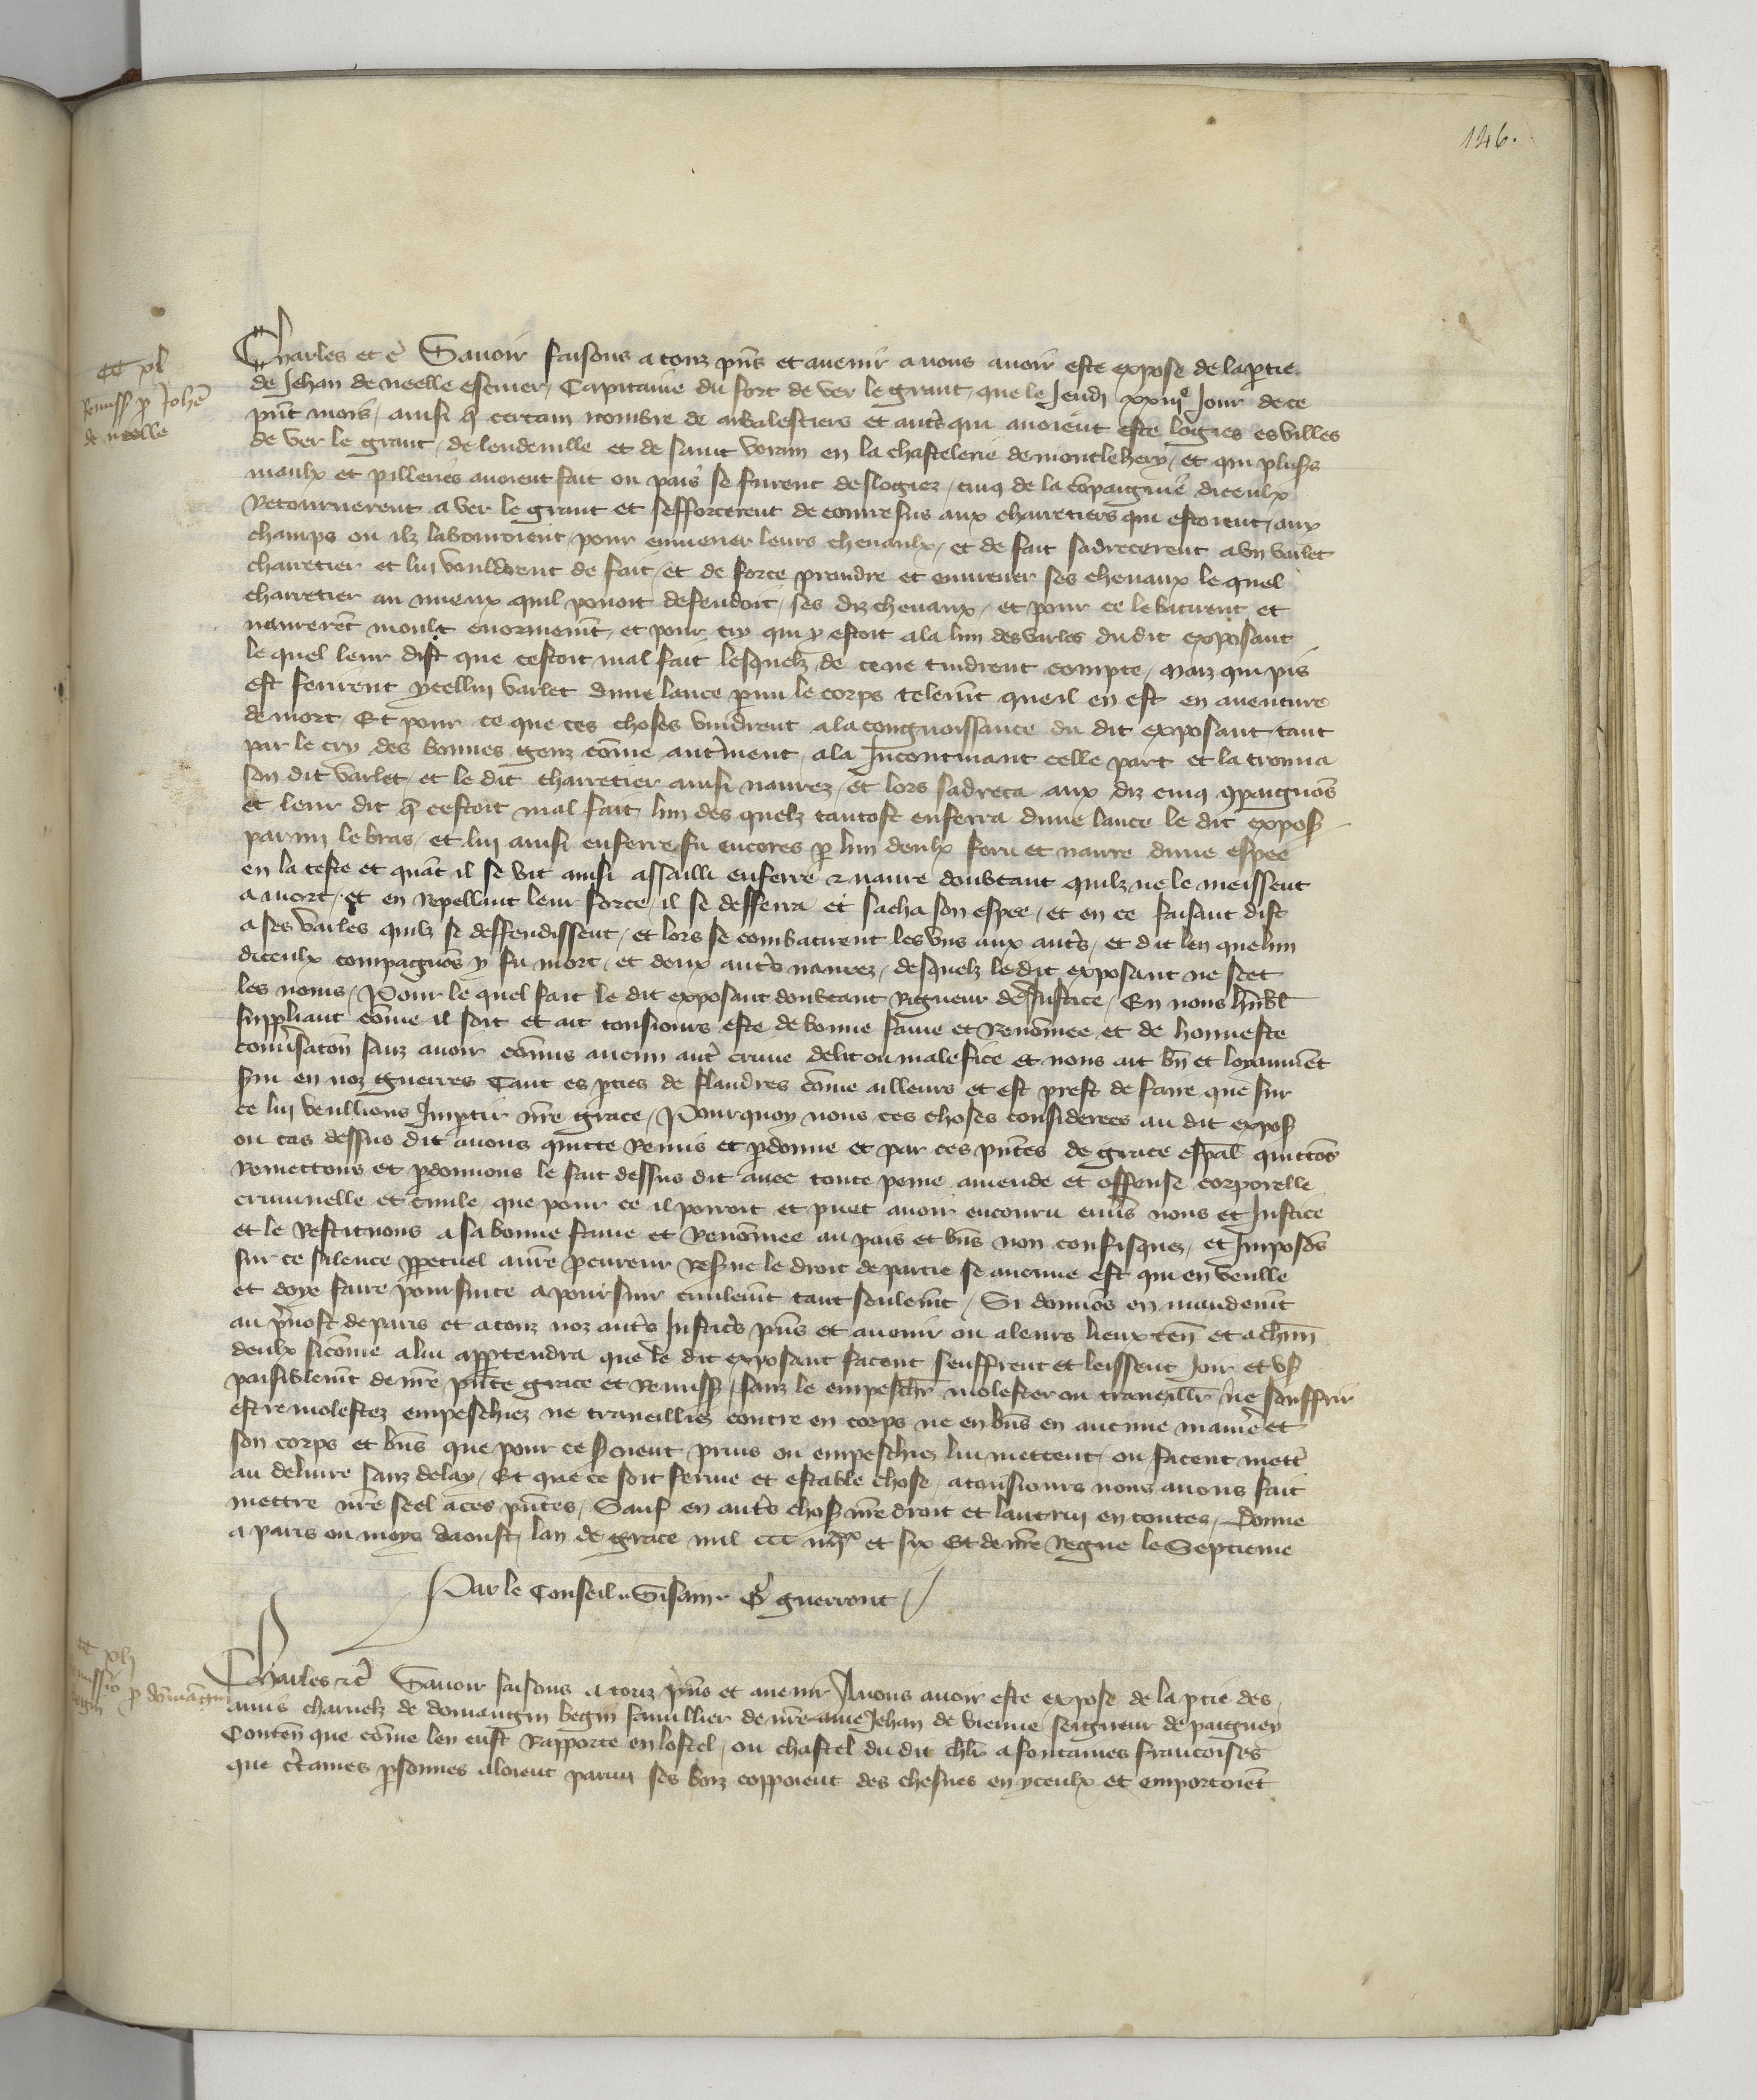 146.
CC xl
Remiss p Johe
de neelle
Charles et c Savoir faisons a touz pns et avenir a nous avoir este expose de la ptie
de Jehan de neelle escuier, Capitaine du fort de ver le grant, que le Jeudi xxiije Jour de ce
pnt mois, ainsi q certain nombre de arbalestiers et auts qui avoient este logies es villes
de ver le grant, de leudeville et de saint verain en la chastelerie de montlehery, et qui plus
maulx et pilleries avoient fait ou pais se furent deslogiez, cinq de la compaignie diceulx
Retournerent a ver le grant et sefforcerent de courre sus aux charretiers qui estoient aux
champs ou ilz labouroient pour enmener leurs chevaulx, et de fait sadrecerent a un varlet
charretier et lui vouldrent de fait et de force prendre et enmener ses chevaux le quel
charretier au mieux quil povoit defendoit ses diz chevaux, et pour ce le batirent et
navrerent moult enormemt, et pour cry qui y estoit ala lun des varles dudit exposant
le quel leur dist que cestoit mal fait lesquelz de ce ne tindrent compte, Maiz qui pis
est ferirent ycellui varlet dune lance pmi le corps telemt que il en est en aventure
de mort, Et pour ce que ces choses vindrent a la congnoissance du dit exposant tant
par le cry des bonnes genz come autrement, ala Incontinant celle part et la trouva
son dit varlet et le dit charretier ainsi navrez, et lors sadreca aux diz cinq compaignos
et leur dit q cestoit mal fait lun des quelz tantost enferra dune lance le dit expos
parmi le bras, et lui ainsi enferre fu encores p lun deulx feru et navre dune espee
en la teste et quat il se vit ainsi assailli enferre et navre doubtant quilz ne le meissent
a mort, et en repellant leur force, il se defferra et sacha son espee, et en ce faisant dist
a ses varles quilz se deffendissent, et lors se combatirent les uns aux auts, et dit len que lun
diceulx compagnos y fu mort, et deux auts navrez, desquelz ledit exposant ne scet
les noms, Pour le quel fait le dit exposant doubtant Rigueur de Justice, En nous humbl
suppliant come il soit et ait tousiours este de bonne fame et Renomee et de honneste
conversaton sanz avoir comis aucun aut crime delit ou malefice et nous ait bn et loyaument
svi en noz guerres Tant es pties de flandres come ailleurs et est prest de faire que sur
ce lui veullions Impartir nre grace, Pourquoy nous ces choses considerees au dit expos
ou cas dessus dit avons quitte Remis et pdonne et par ces pntes de grace espal quittons
Remettons et pdonnons le fait dessus dit avec toute peine amende et offense corporelle
criminelle et civile, que pour ce il porroit et puet avoir encouru envs nous et Justice
et le Restituons a sa bonne fame et Renomee au pais et bns non confisquez, et Imposons
sur ce silence ppetuel a nre pcureur Resve le droit de partie se aucune est qui en veulle
et doye faire poursuite a poursuir civilemt tant seulemt, Si donnons en mandemt
au pvost de paris et a touz noz auts Justiciers pns et avenir ou a leurs lieuxten et a chun
deulx sicome a lui appartendra que le dit exposant facent seuffrent et leissent Joir et us
paisiblemt de nre pnte grace et Remiss, sanz le empescher molester ou traveillr ne souffrir
estre molestez empeschiez ne traveilliez contre en corps ne en bns en aucune maniere et
son corps et bns que pour ce seroient prins ou empeschiez lui mettent ou facent mett
au delivre sanz delay, Et que ce soit ferme et estable chose, a tousiours nous avons fait
mettre nre seel a ces pntes, Sauf en auts chos nre droit et lautrui en toutes, Donne
a paris ou moys daoust, lan de grace mil ccc iiijxx et six Et de nre Regne le Septieme
Par le Conseil Gisain G guerront
CC xlj
Remissio p domangin
begin
Charles etc Savoir faisons a touz pns et avenir A nous avoir este expose de la ptie des
amis charnelz de domangin begin famillier de nre ame Jehan de vienne seigneur de paigney
Conten que come len eust Rapporte en lostel, ou chastel du dit chlr a fontaines francoises
que ctaines psonnes aloient parmi ses boiz coppoient des chesnes en yceulx et emportoiet